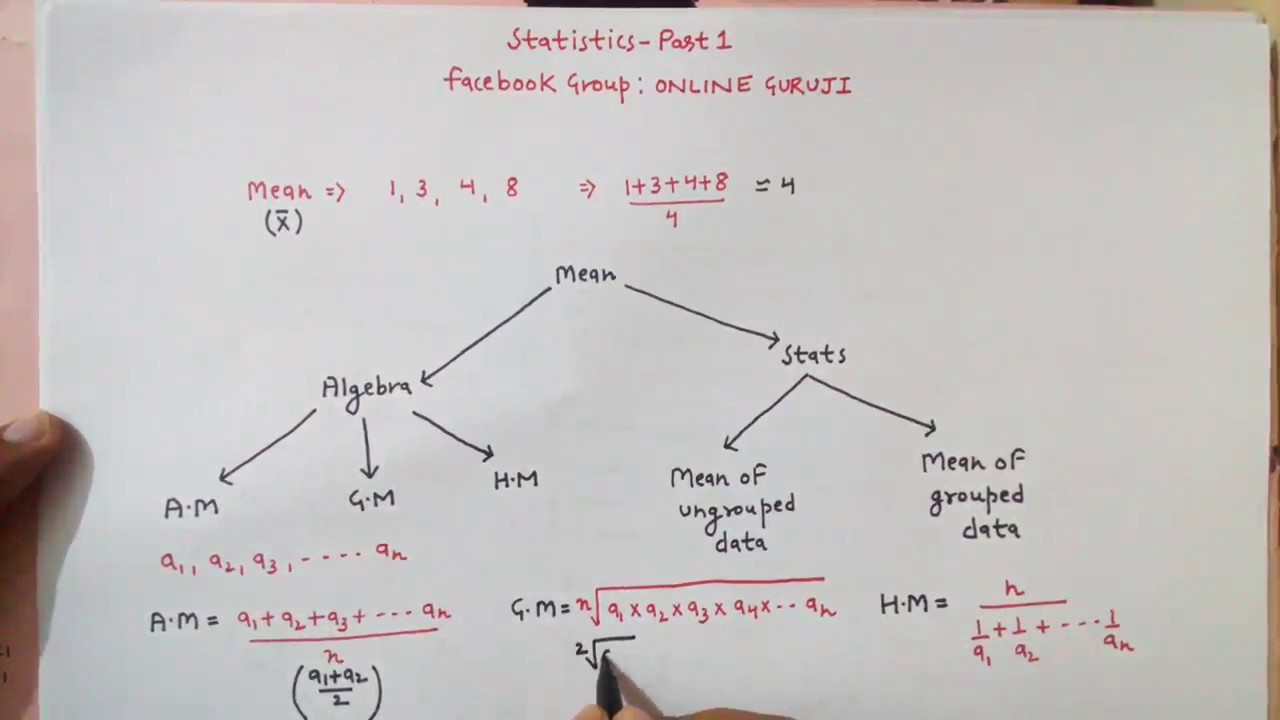 Statistics - Part 1
facebook Group: ONLINE GURUJI
Mean => 1, 3, 4, 8 => 1+3+4+8 / 4 ≈ 4
(x̄)
Mean
Algebra
Stats
A.M
G.M
H.M
Mean of
ungrouped
data
Mean of
grouped
data
a₁, a₂, a₃, - - - - - aₙ
A.M = a₁+a₂+a₃+ - - - aₙ / n
(a₁+a₂ / 2)
G.M = ⁿ√a₁ × a₂ × a₃ × a₄ × - - aₙ
²√
H.M = n / 1/a₁ + 1/a₂ + - - - 1/aₙ